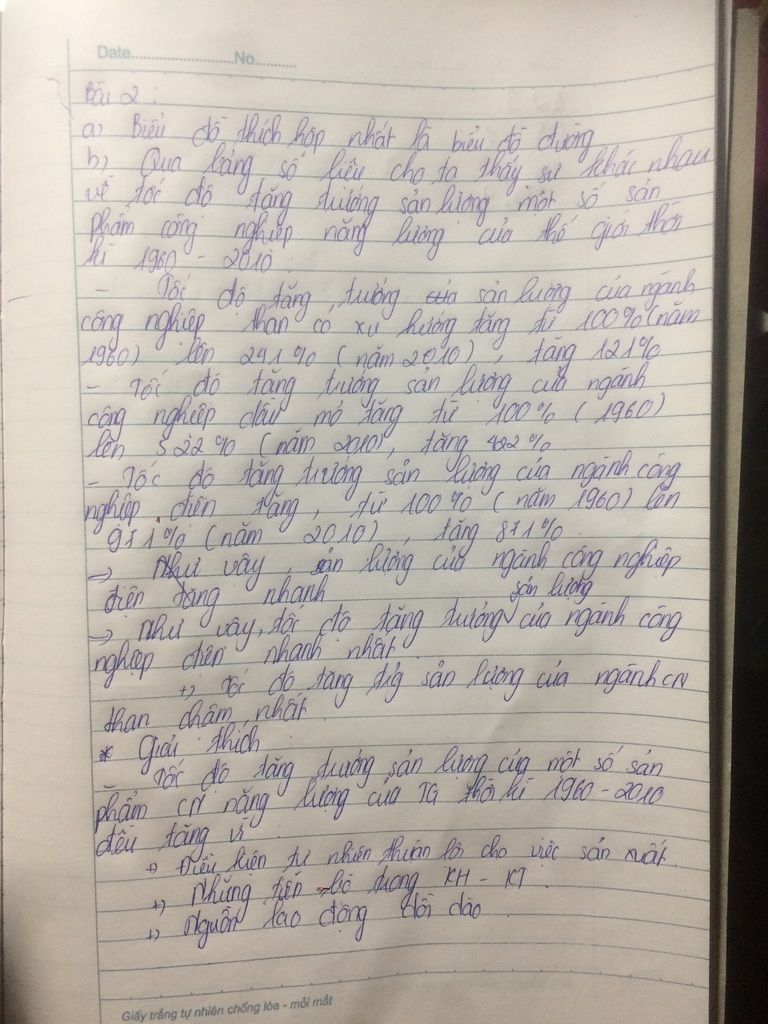 Date..........................No..........
Bài 2 :
a, Biểu đồ thích hợp nhất là biểu đồ đường
b, Qua bảng số liệu cho ta thấy sự khác nhau
về tốc độ tăng trưởng sản lượng một số sản
phẩm công nghiệp năng lượng của thế giới thời
kì 1960 - 2010 :
- Tốc độ tăng trưởng của sản lượng của ngành
công nghiệp than có xu hướng tăng từ 100% (năm
1960) lên 241% (năm 2010), tăng 121%
- Tốc độ tăng trưởng sản lượng của ngành
công nghiệp dầu mỏ tăng từ 100% (1960)
lên 522% (năm 2010), tăng 422%
- Tốc độ tăng trưởng sản lượng của ngành công
nghiệp điện tăng, từ 100% (năm 1960) lên
971% (năm 2010), tăng 871%
=> Như vậy, sản lượng của ngành công nghiệp
điện tăng nhanh
=> Như vậy, tốc độ tăng trưởng sản lượng của ngành công
nghiệp điện nhanh nhất
+, Tốc độ tăng trg sản lượng của ngành CN
than chậm nhất
* Giải thích
- Tốc độ tăng trưởng sản lượng của một số sản
phẩm CN năng lượng của TG thời kì 1960 - 2010
đều tăng vì
+, Điều kiện tự nhiên thuận lợi cho việc sản xuất
+, Những tiến bộ trong KH - KT
+, Nguồn lao động dồi dào
Giấy trắng tự nhiên chống lóa - mỏi mắt